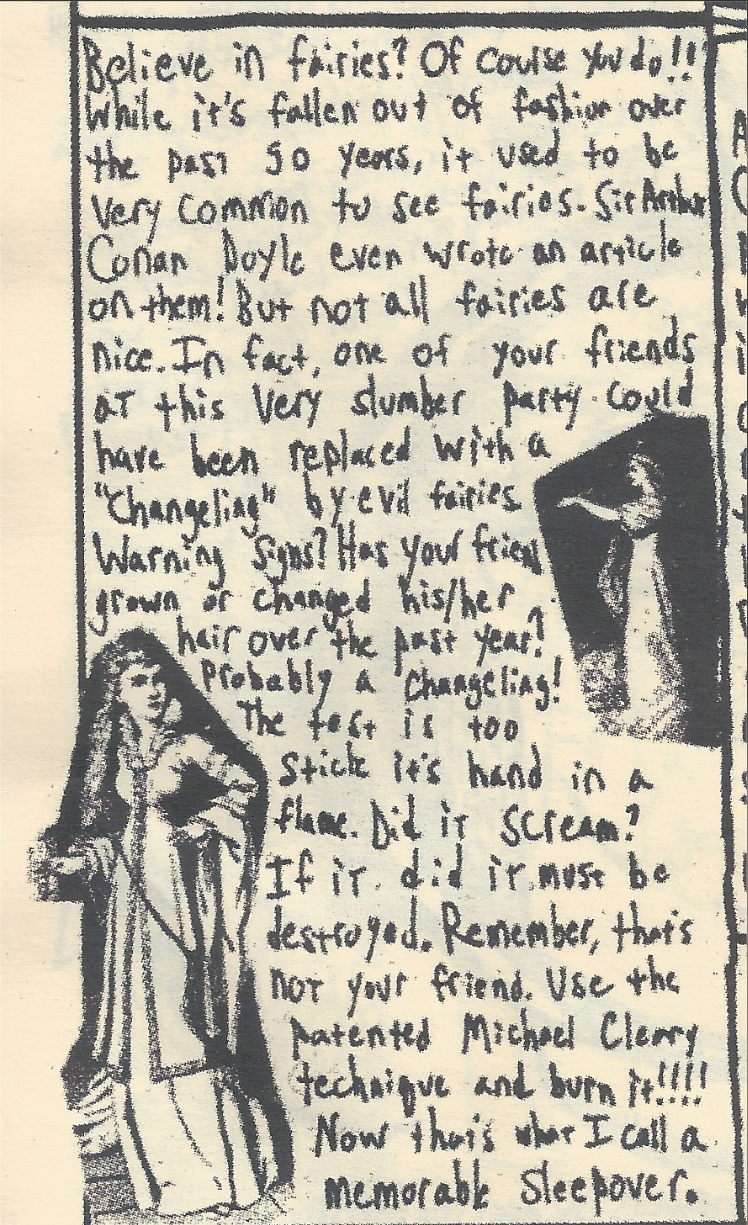 Believe in fairies? Of couise you do!!
While it's fallen out of fashion over
the past 50 years, it used to be
very common to see fairies. Sir Arthur
Conan Doyle even wrote an article
on them! But not all fairies are
nice. In fact, one of your friends
at this very slumber party could
have been replaced with a
"Changeling" by evil fairies
Warning signs? Has your friend
grown or changed his/her
hair over the past year?
Probably a changeling!
The test is too
stick it's hand in a
flame. Did it scream?
If it did it must be
destroyed. Remember, that's
not your friend. Use the
patented Michael Clerry
technique and burn it!!!!
Now that's what I call a
memorable sleepover.